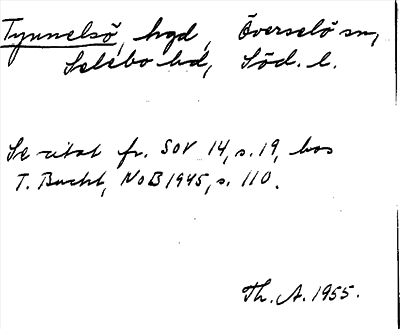 Tynnelsö, hgd, Överselö sn,
Selebo hd, Söd. l.
Se citat fr. SOV 14, s. 19, hos
T. Bucht, NoB 1945, s. 110.
Th. A. 1955.